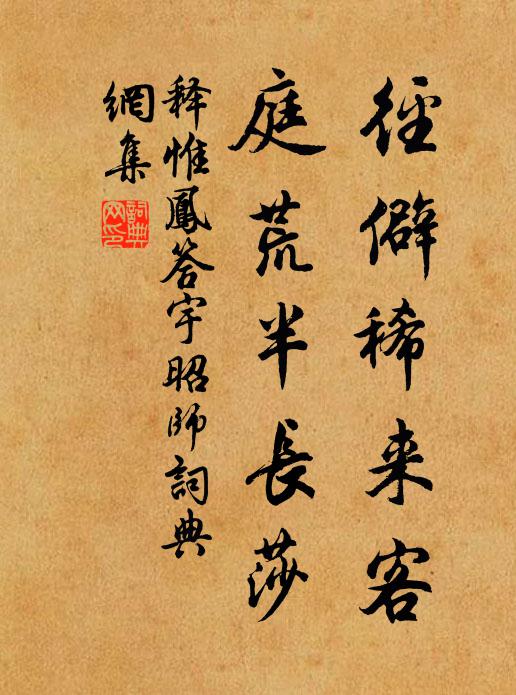 徑僻稀来客
庭荒半長莎
释惟鳳答宇昭師詞典
網集
詞典網印